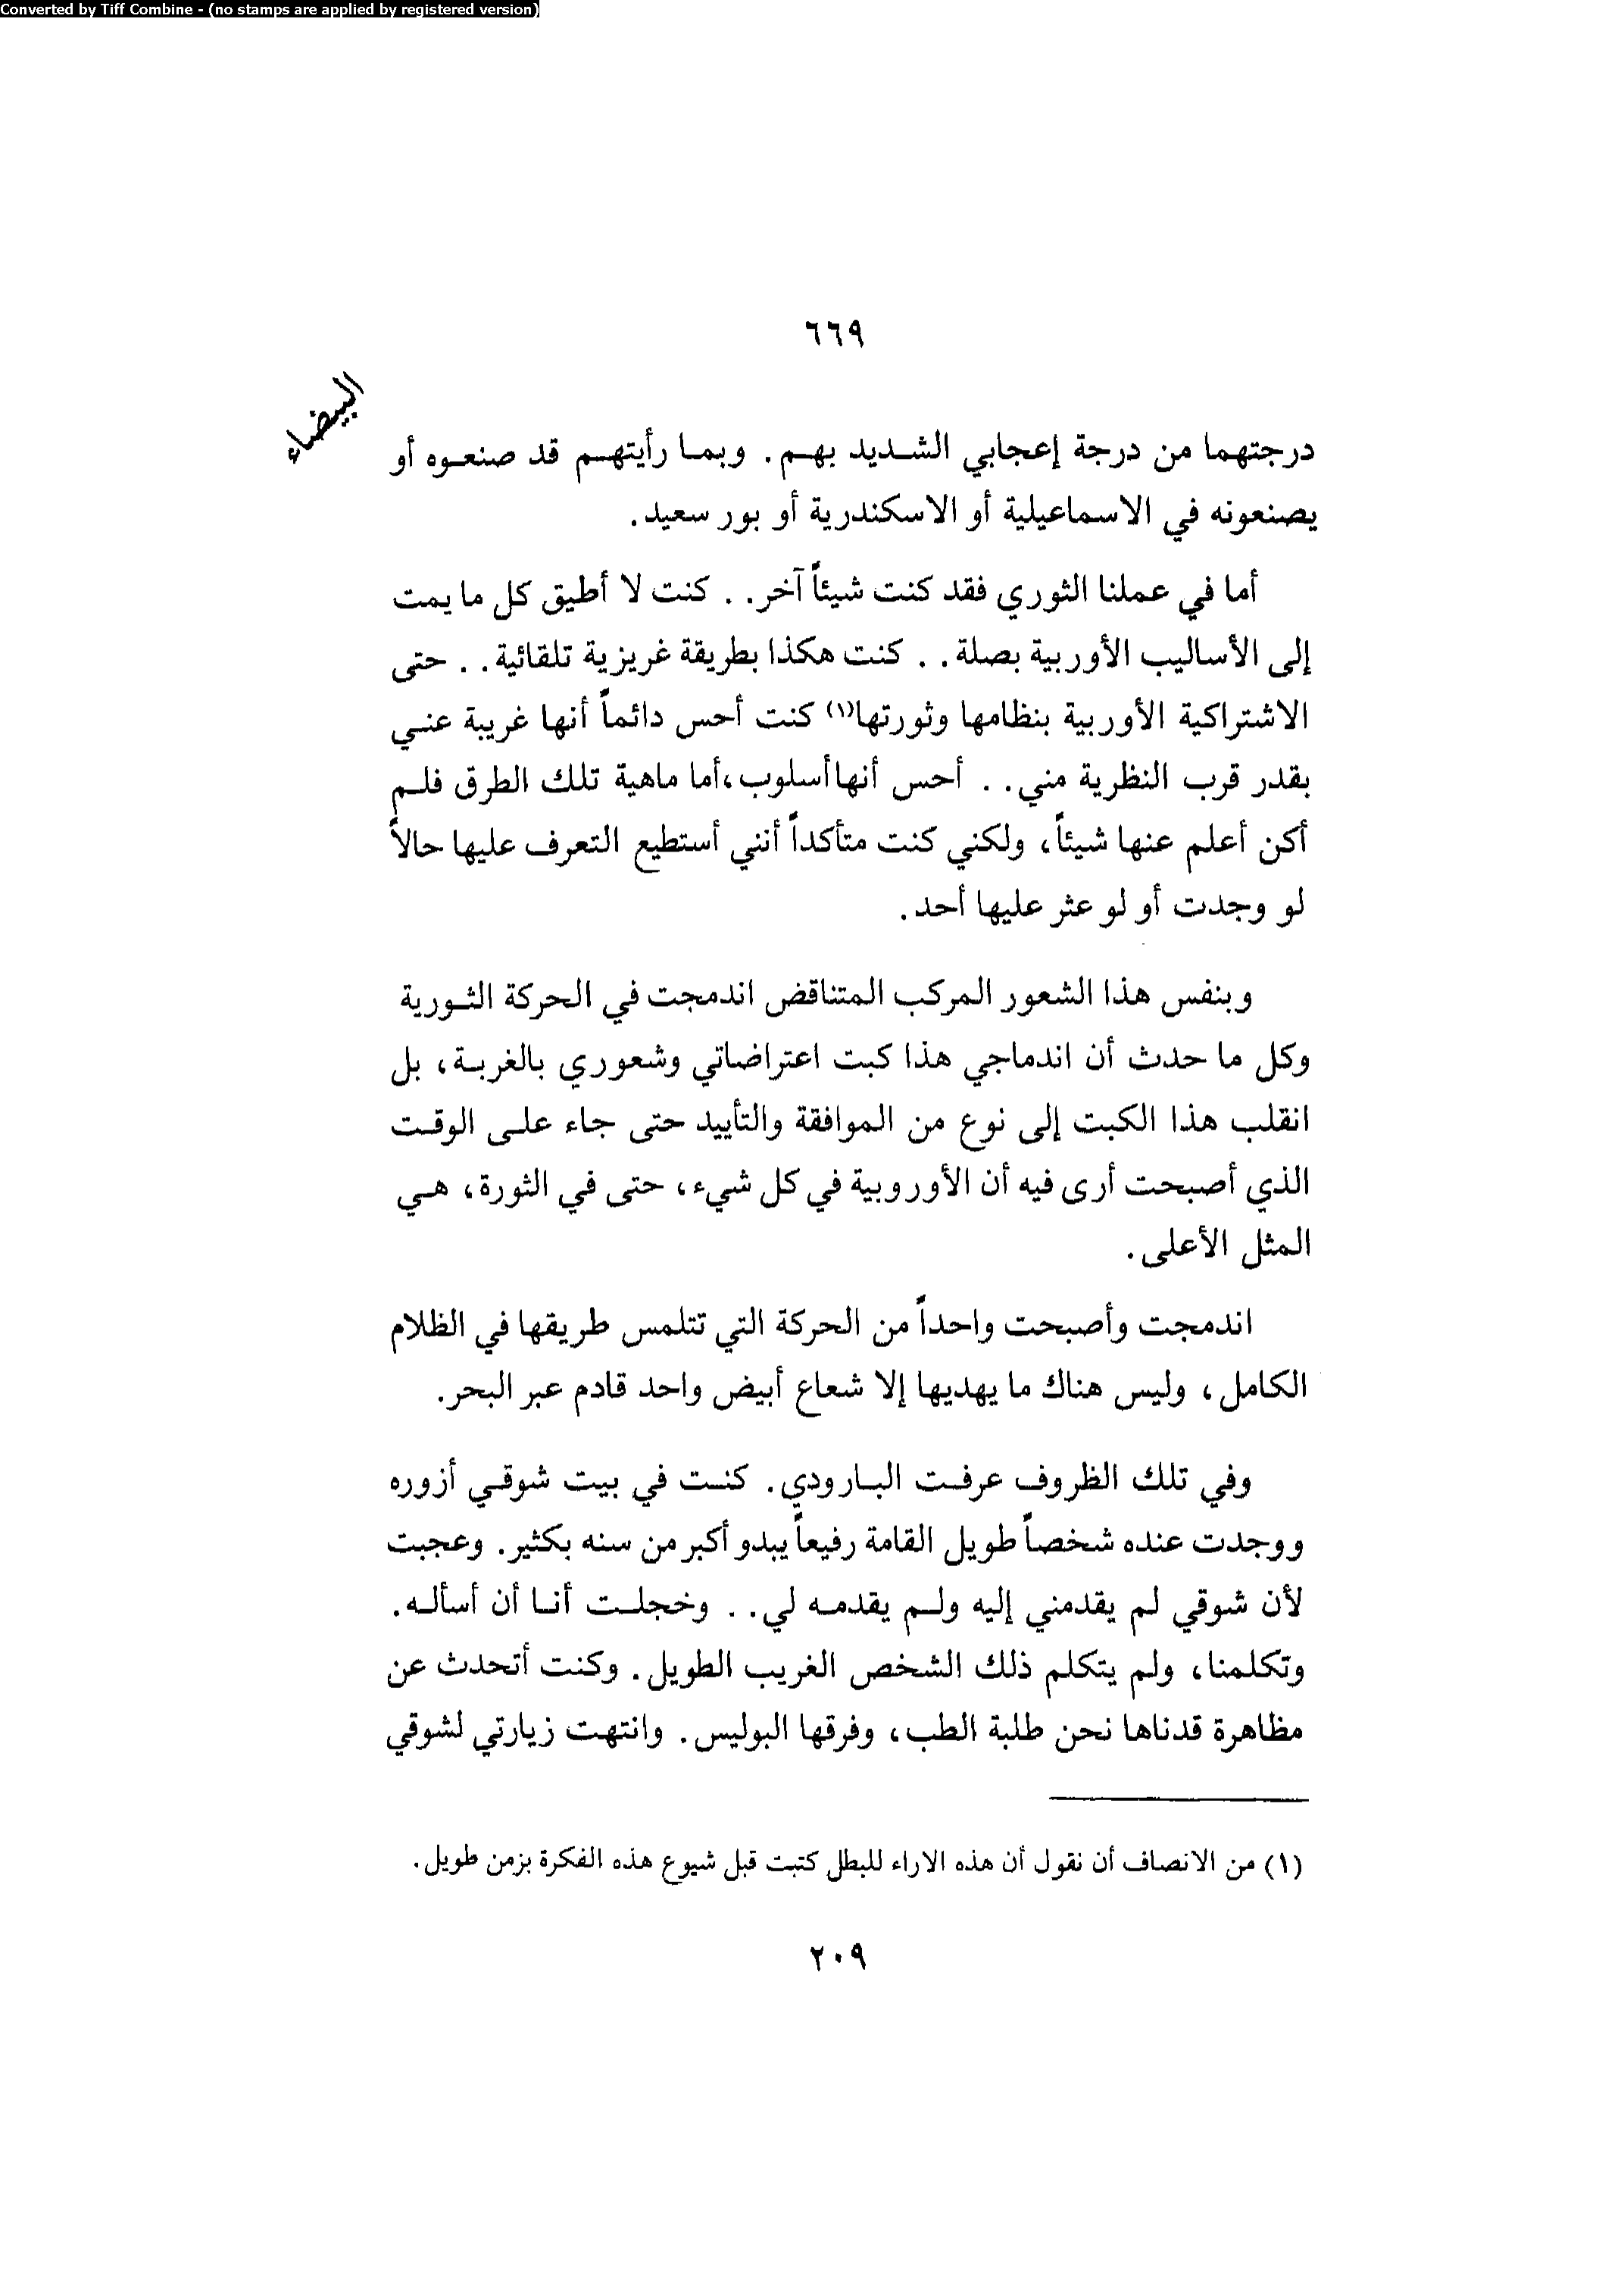 Converted by Tiff Combine - (no stamps are applied by registered version)
٦٦٩
البيضاء
درجتهما من درجة إعجابي الشديد بهم. وبما رأيتهم قد صنعوه أو
يصنعونه في الاسماعيلية أو الاسكندرية أو بور سعيد.
أما في عملنا الثوري فقد كنت شيئاً آخر. . كنت لا أطيق كل ما يمت
إلى الأساليب الأوربية بصلة. . كنت هكذا بطريقة غريزية تلقائية. . حتى
الاشتراكية الأوربية بنظامها وثورتها(١) كنت أحس دائماً أنها غريبة عني
بقدر قرب النظرية مني. . أحس أنها أسلوب، أما ماهية تلك الطرق فلم
أكن أعلم عنها شيئاً، ولكني كنت متأكداً أنني أستطيع التعرف عليها حالاً
لو وجدت أو لو عثر عليها أحد.
وبنفس هذا الشعور المركب المتناقض اندمجت في الحركة الثورية
وكل ما حدث أن اندماجي هذا كبت اعتراضاتي وشعوري بالغربة، بل
انقلب هذا الكبت إلى نوع من الموافقة والتأييد حتى جاء على الوقت
الذي أصبحت أرى فيه أن الأوروبية في كل شيء، حتى في الثورة، هي
المثل الأعلى.
اندمجت وأصبحت واحداً من الحركة التي تتلمس طريقها في الظلام
الكامل، وليس هناك ما يهديها إلا شعاع أبيض واحد قادم عبر البحر.
وفي تلك الظروف عرفت البارودي. كنت في بيت شوقي أزوره
ووجدت عنده شخصاً طويل القامة رفيعاً يبدو أكبر من سنه بكثير. وعجبت
لأن شوقي لم يقدمني إليه ولم يقدمه لي. . وخجلت أنا أن أسأله.
وتكلمنا، ولم يتكلم ذلك الشخص الغريب الطويل. وكنت أتحدث عن
مظاهرة قدناها نحن طلبة الطب، وفرقها البوليس. وانتهت زيارتي لشوقي
(١) من الانصاف أن نقول أن هذه الاراء للبطل كتبت قبل شيوع هذه الفكرة بزمن طويل.
٢٠٩